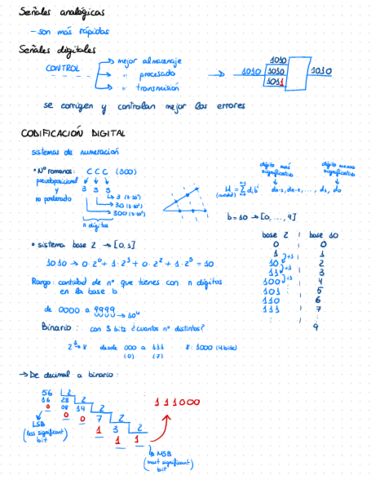 Señales analógicas
- son más rápidas
Señales digitales
CONTROL
mejor almacenaje
" procesado
" transmisión
1010
1010 1010 1010
1011
se corrigen y controlan mejor los errores
CODIFICACIÓN DIGITAL
sistemas de numeración
• Nº romanos: CCC (300)
pseudoposicional y no ponderado
3 3 3
3 (3·10⁰)
30 (3·10¹)
300 (3·10²)
n dígitos
dígito más significativo
dígito menos significativo
b = 10 → [0, ..., 9]
• sistema base 2 → [0,1]
1010 → 0·2⁰ + 1·2¹ + 0·2² + 1·2³ = 10
Rango: cantidad de nº que tienes con n dígitos
en la base b
de 0000 a 9999 → 10⁴
Binario: con 3 bits ¿cuantos nº distintos?
2³ = 8 desde 000 a 111 8: 1000 (4 bits)
(0) (7)
base 2 base 10
0 0
1 1
10 2
11 3
100 4
101 5
110 6
111 7
9
→ De decimal a binario:
56 2
16 28 2
0 08 14 2
0 0 7 2
1 3 2
1 1
111000
LSB
(less significant bit)
MSB
(most significant bit)